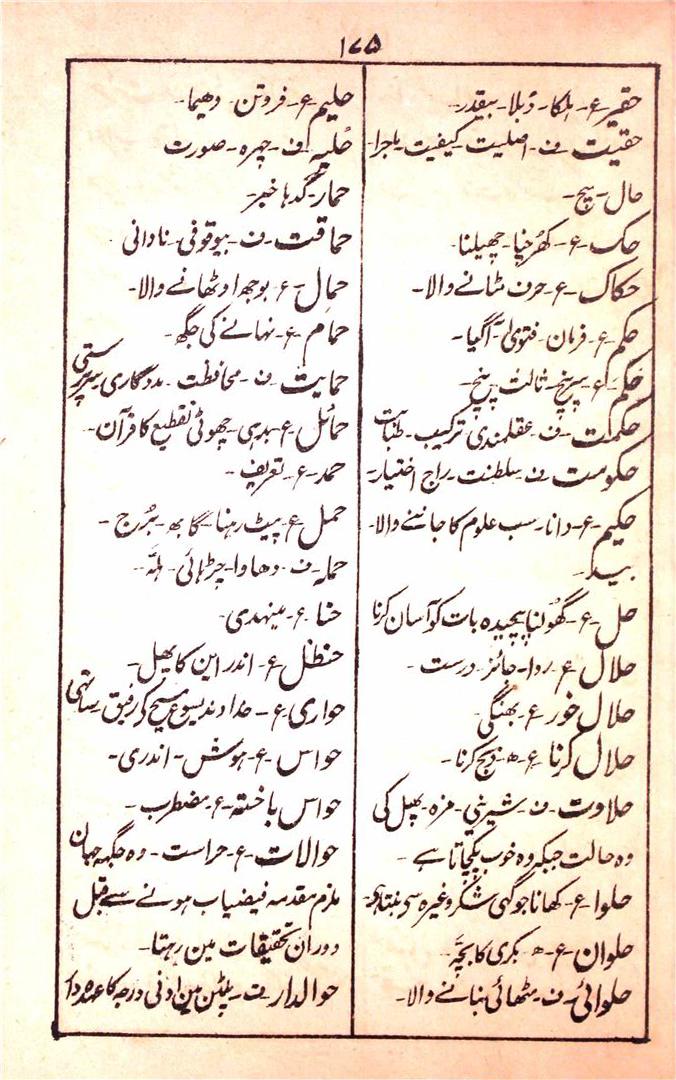 ۱۷۵
حقیر-ع- ہلکا- دُبلا- بیقدر-
حقیت-ف- اصلیت کیفیت- ماجرا-
حال- سچ-
حک-ع- کھُرچنا- چھیلنا-
حکاک-ع- حرف مٹانے والا-
حکم-ع- فرمان- فتویٰ- آگیا-
حکم-ع- سرپنچ- ثالث پنچ-
حکمت-ف- عقلمندی ترکیب- طبابت
حکومت-ف- سلطنت- راج اختیار-
حکیم-ع- دانا- سب علوم کا جاننے والا-
بید-
حل-ع- گھولنا پیچیدہ بات کو آسان کرنا
حلال-ع- روا- جائز- درست-
حلال خور-ع- بھنگی-
حلال کرنا-ع-ھ- ذبح کرنا-
حلاوت-ف- شیرینی- مزہ- پھل کی
وہ حالت جبکہ وہ خوب پک جاتا ہے-
حلوا-ع- کھانا جو گھی شکر وغیرہ سی بنتا ہی-
حلوان-ع-ھ- بکری کا بچہّ
حلوائی-ف- مٹھائی بنانے والا-
حلیم-ع- فروتن- دھیما-
حُلیہ-ف- چہرہ- صورت
حمار-ع- گدہا خبر-
حماقت-ف- بیوقوفی- نادانی
حمال-ع- بوجھ اوٹھانے والا-
حمام-ع- نہانے کی جگھ-
حمایت-ف- محافظت- مددگاری سرپرستی
حمائل-ع- بدہی- چھوٹی تقطیع کا قرآن-
حمد-ع- تعریف-
حمل-ع- پیٹ رہنا- گابھ- بُرج-
حملہ-ف- دھاوا- چڑہائی- ہلّہ-
حنا-ع- مینہدی-
حنظل-ع- اندراین کا پھل-
حواری-ع- خداوند یسوع مسیح کی رفیق- ساتھی
حواس-ع- ہوش- اندری-
حواس باختہ-ع- مضطرب-
حوالات-ع- حراست- وہ جگہہ جہان
ملزم مقدمہ فیضیاب ہونے سے قبل
دوران تحقیقات مین رہتا-
حوالدار-ت- پلٹن مین ادنی درجہ کا عہدہ دا